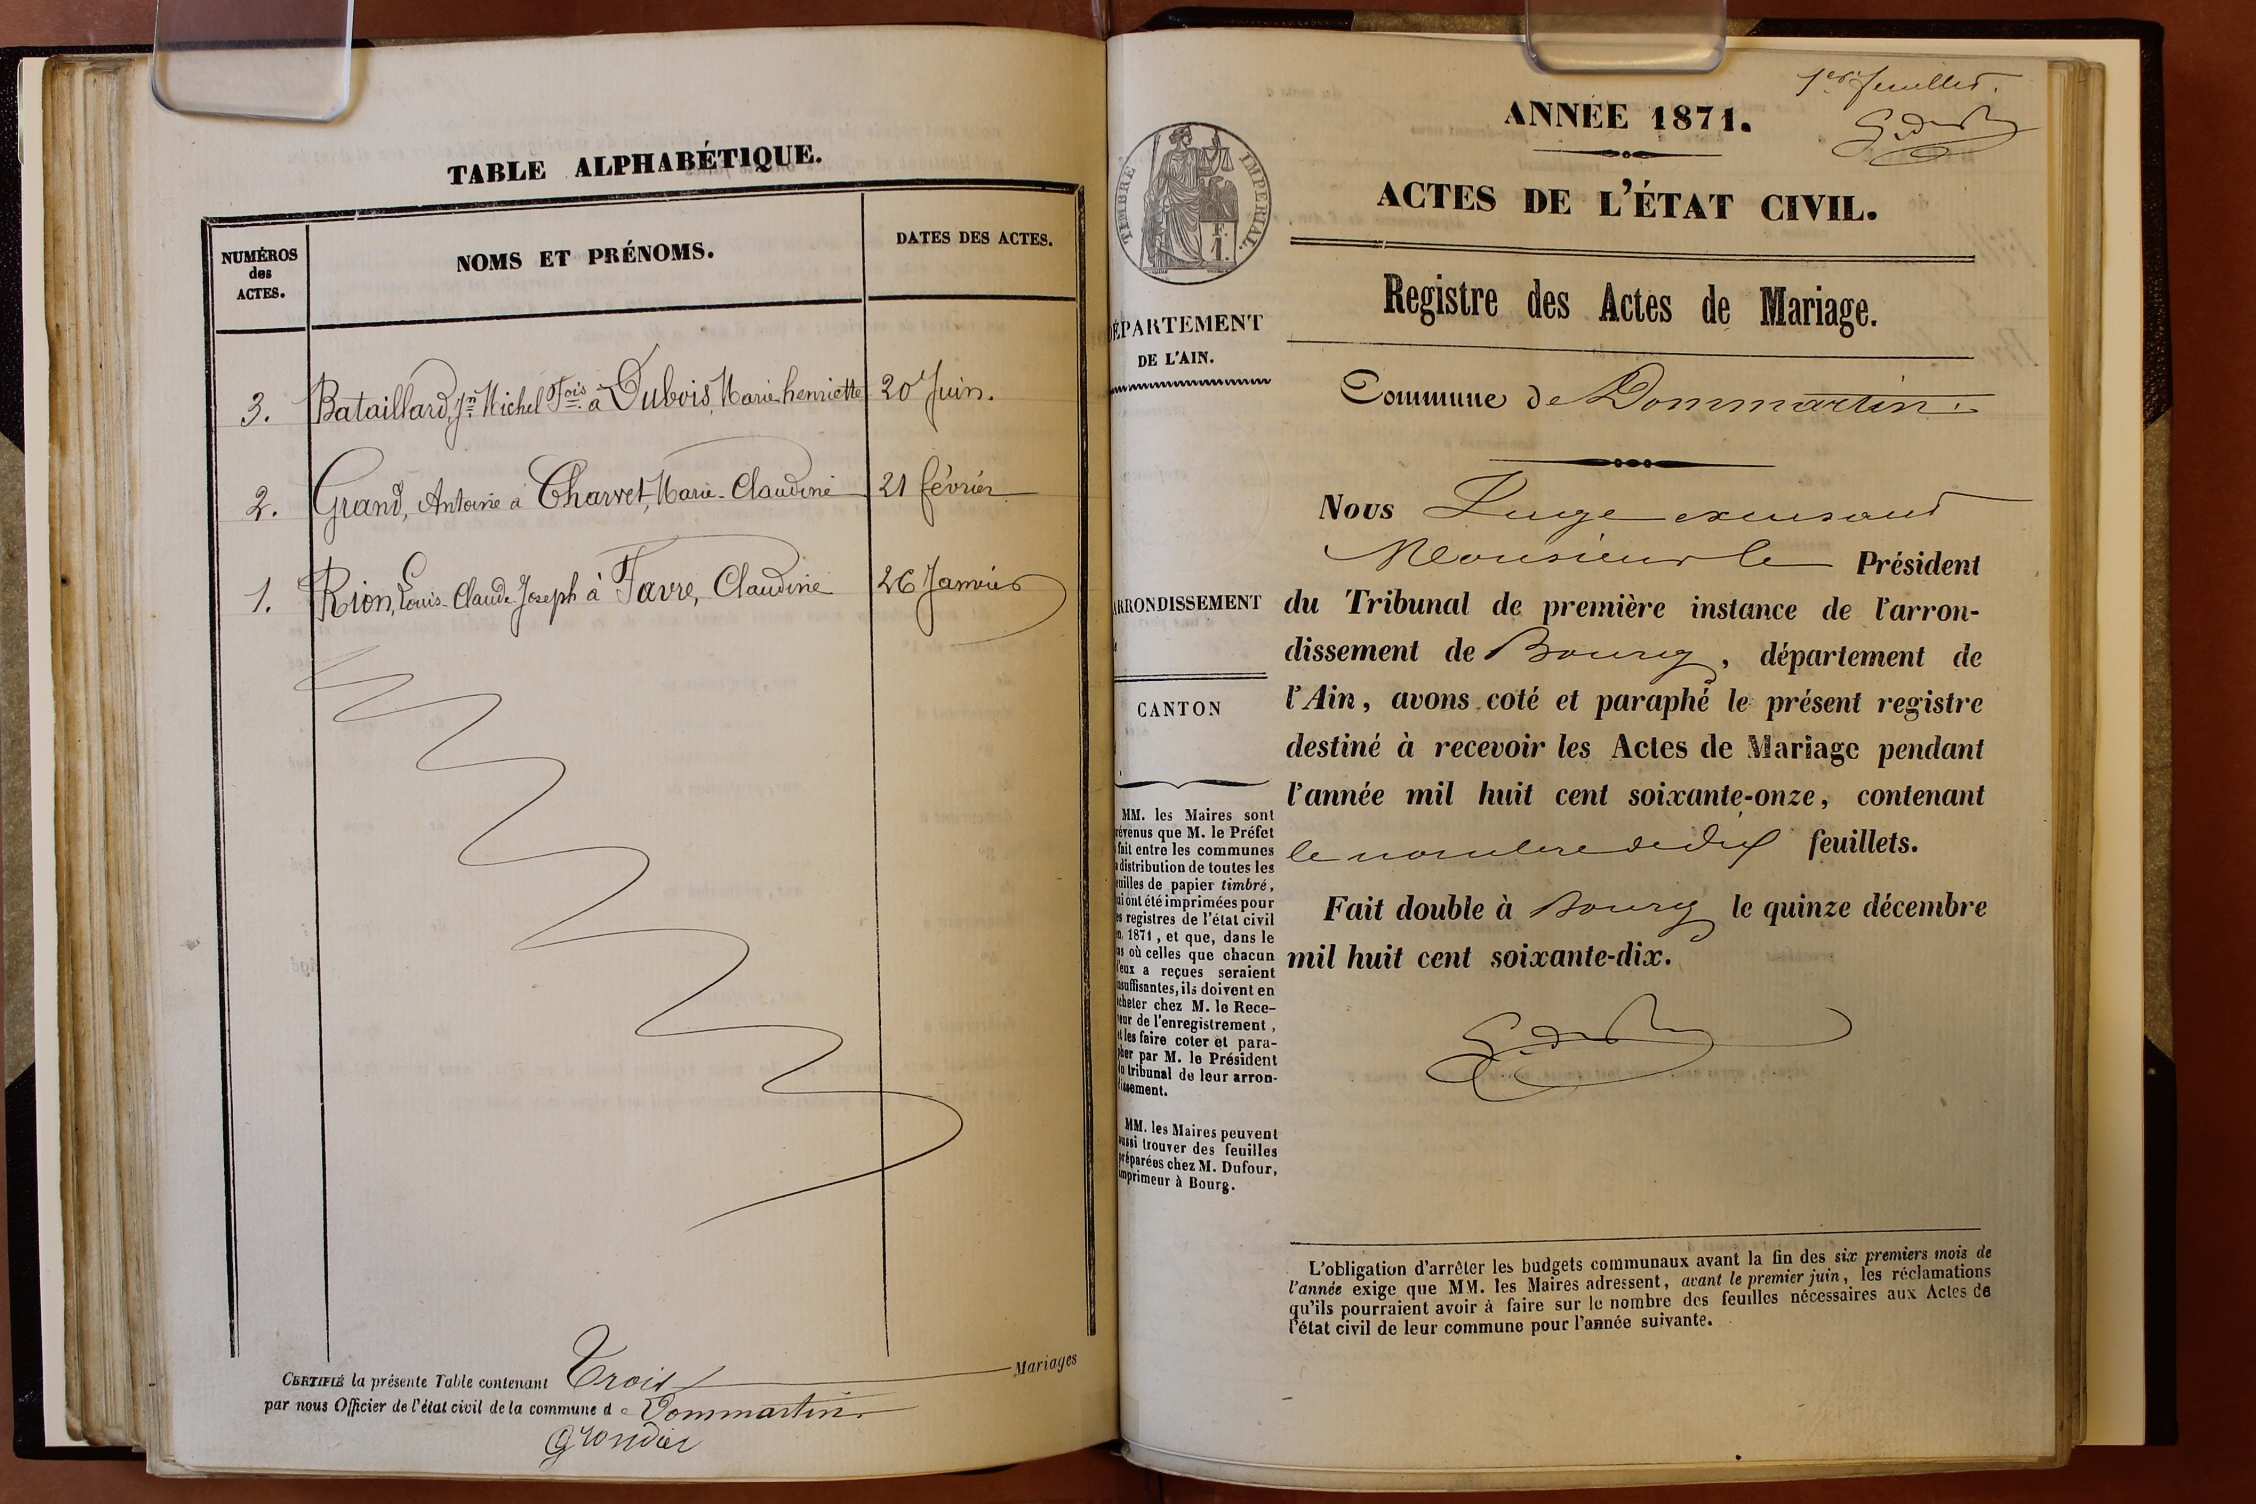 TABLE ALPHABÉTIQUE.
NUMÉROS
des
ACTES.
NOMS ET PRÉNOMS.
DATES DES ACTES.
3. Bataillard, Jn Michel Fois à Dubois, Marie henriette 20 Juin.
2. Grand, Antoine à Charvet, Marie-Claudine 21 février
1. Rion, Louis-Claude-Joseph à Favre, Claudine 26 Janvier
CERTIFIÉ la présente Table contenant Trois Mariages
par nous Officier de l'état civil de la commune de Dommartin.
Grondier
1er feuillet.
TIMBRE IMPERIAL.
1 F.
ANNÉE 1871.
ACTES DE L'ÉTAT CIVIL.
Registre des Actes de Mariage.
Commune de Dommartin.
DÉPARTEMENT
DE L'AIN.
Nous Juge excusant
Monsieur le Président
du Tribunal de première instance de l'arron-
dissement de Bourg, département de
l'Ain, avons coté et paraphé le présent registre
destiné à recevoir les Actes de Mariage pendant
l'année mil huit cent soixante-onze, contenant
le nombre de dix feuillets.
Fait double à Bourg le quinze décembre
mil huit cent soixante-dix.
ARRONDISSEMENT
CANTON
MM. les Maires sont
révenus que M. le Préfet
fait entre les communes
a distribution de toutes les
euilles de papier timbré,
ui ont été imprimées pour
es registres de l'état civil
en 1871, et que, dans le
as où celles que chacun
d'eux a reçues seraient
nsuffisantes, ils doivent en
cheter chez M. le Rece-
veur de l'enregistrement,
et les faire coter et para-
pher par M. le Président
du tribunal de leur arron-
dissement.
MM. les Maires peuvent
aussi trouver des feuilles
préparées chez M. Dufour,
imprimeur à Bourg.
L'obligation d'arrêter les budgets communaux avant la fin des six premiers mois de
l'année exige que MM. les Maires adressent, avant le premier juin, les réclamations
qu'ils pourraient avoir à faire sur le nombre des feuilles nécessaires aux Actes de
l'état civil de leur commune pour l'année suivante.